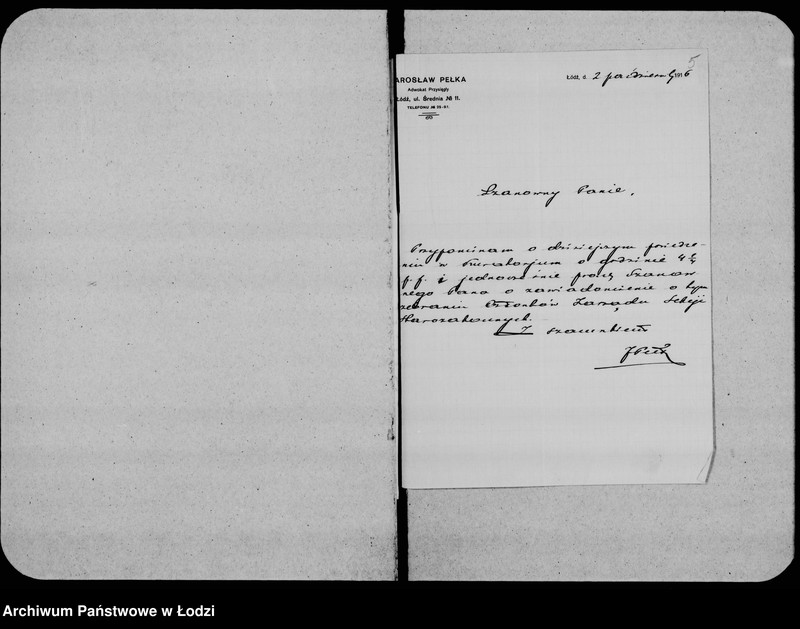 5
AROSŁAW PEŁKA
Adwokat Przysięgły
Łódź, ul. Średnia № 11.
TELEFONU № 25-51.
Łódź, d. 2 października 1916
Szanowny Panie,
Przypominam o dzisiejszym posiedze-
niu w Kuratorjum o godzinie 4½
p. p. i jednocześnie proszę Szanow
nego Pana o zawiadomienie o tym
zebraniu Członków Zarządu Sekcji
Z szacunkiem
JPełka
Archiwum Państwowe w Łodzi